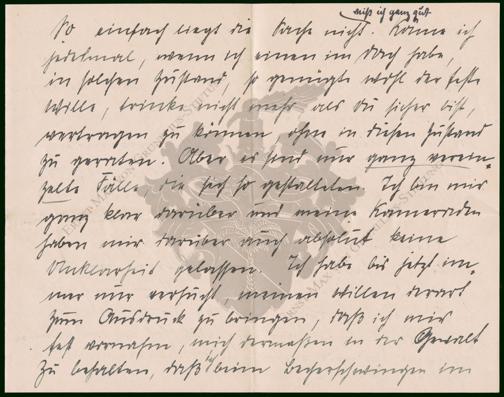 weiß ich ganz gut
So einfach liegt die Sache nicht. Käme ich
jedesmal, wenn ich einen im Dach habe,
in solchen Zustand, so genügte wohl der feste
Wille, trinke nicht mehr als du sicher bist,
vertragen zu können, ohne in diesen Zustand
zu geraten. Aber es sind nur ganz verein-
zelte Fälle die sich so gestalteten. Ich bin mir
ganz klar darüber und meine Kameraden
haben mir darüber auch absolut keine
Unklarheit gelassen. Ich habe bis jetzt im-
mer nur versucht meinen Willen derart
zum Ausdruck zu bringen, daß ich mir
fest vornahm, mich dermaßen in der Gewalt
zu behalten, daß ich beim Becherschwingen im